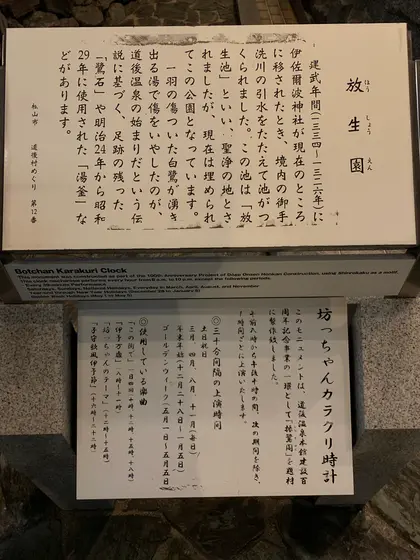 放生園
ほう しょう えん
建武年間(一三三四-一三三六年)に
伊佐爾波神社が現在のところ
に移されたとき、境内の御手
洗川の引水をたたえて池がつ
くられました。この池は「放
生池」といい、聖浄の地とさ
れましたが、現在は埋められ
てこの公園となっています。
一羽の傷ついた白鷺が湧き
出る湯で傷をいやしたのが、
道後温泉の始まりだという伝
説に基づく、足跡の残った
「鷺石」や明治24年から昭和
29年に使用された「湯釜」な
どがあります。
松山市 道後村めぐり 第12番
Botchan Karakuri Clock
This monument was constructed as part of the 100th Anniversary Project of Dogo Onsen Honkan Construction, using Shinrokaku as a motif.
The clock mechanism performs every hour from 8 a.m. to 10 p.m. except the following periods.
Every 30minutes Performances
Saturdays, Sundays, National Holidays, Everyday in March, April, August, and November
Year-end through New Year Holidays (December 28 to January 5)
Golden Week Holidays (May 1 to May 5)
坊っちゃんカラクリ時計
このモニュメントは、道後温泉本館建設百
周年記念事業の一環として「振鷺閣」を題材
に製作致しました。
午前八時から午後十時の間、次の期間を除き、
1時間ごとに上演いたします。
◎三十分間隔の上演時間
土日祝日
三月 四月 八月 十一月(毎日)
年末年始(十二月二十八日〜一月五日)
ゴールデンウィーク(五月一日〜五月五日)
◎使用している楽曲
「この街で」
「伊予万歳」
「坊っちゃんのテーマ」(十二時〜十五時)
(十六時〜二十二時)